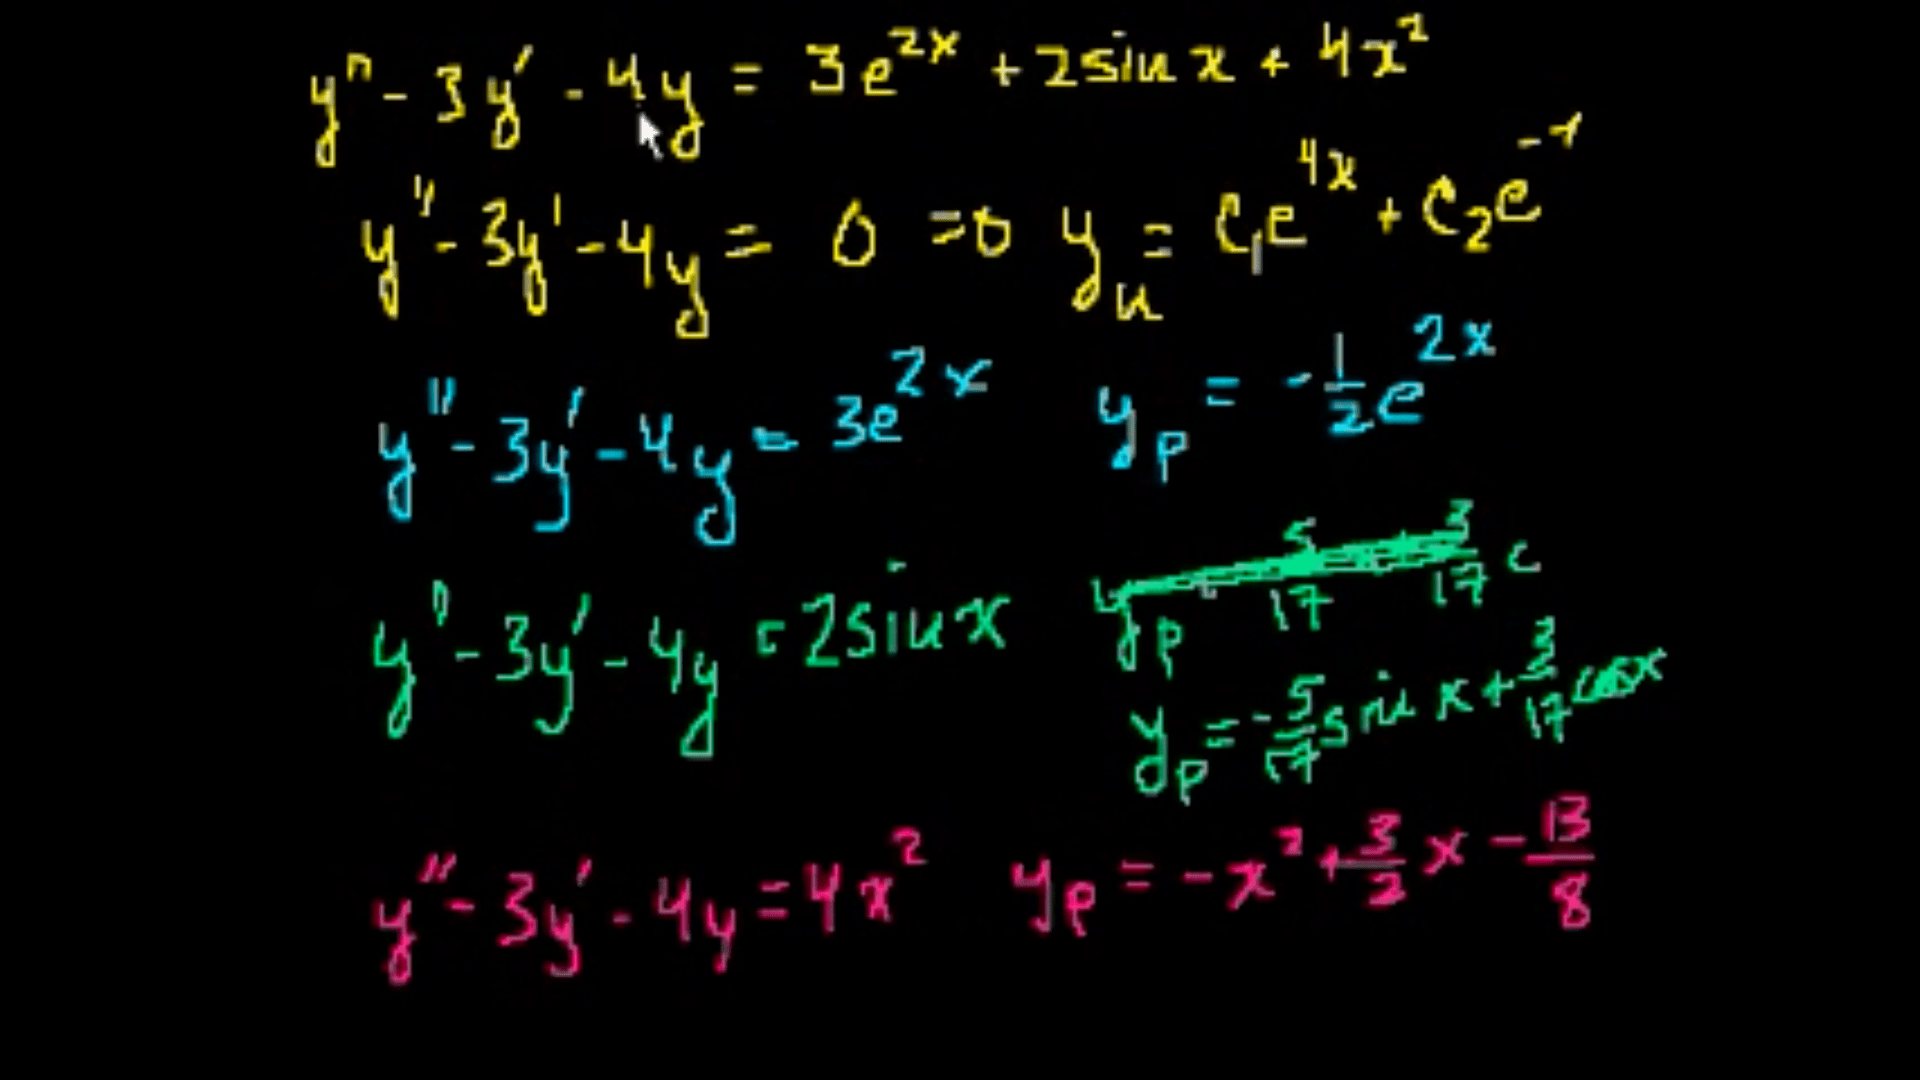 y'' - 3y' - 4y = 3e^{2x} + 2sin x + 4x^2
y'' - 3y' - 4y = 0 =0 y_h = C_1e^{4x} + C_2e^{-x}
y'' - 3y' - 4y = 3e^{2x} y_p = -\frac{1}{2}e^{2x}
y'' - 3y' - 4y = 2sin x y_p
y_p = -\frac{5}{17}sin x + \frac{3}{17}cos x
y'' - 3y' - 4y = 4x^2 y_p = -x^2 + \frac{3}{2}x - \frac{13}{8}